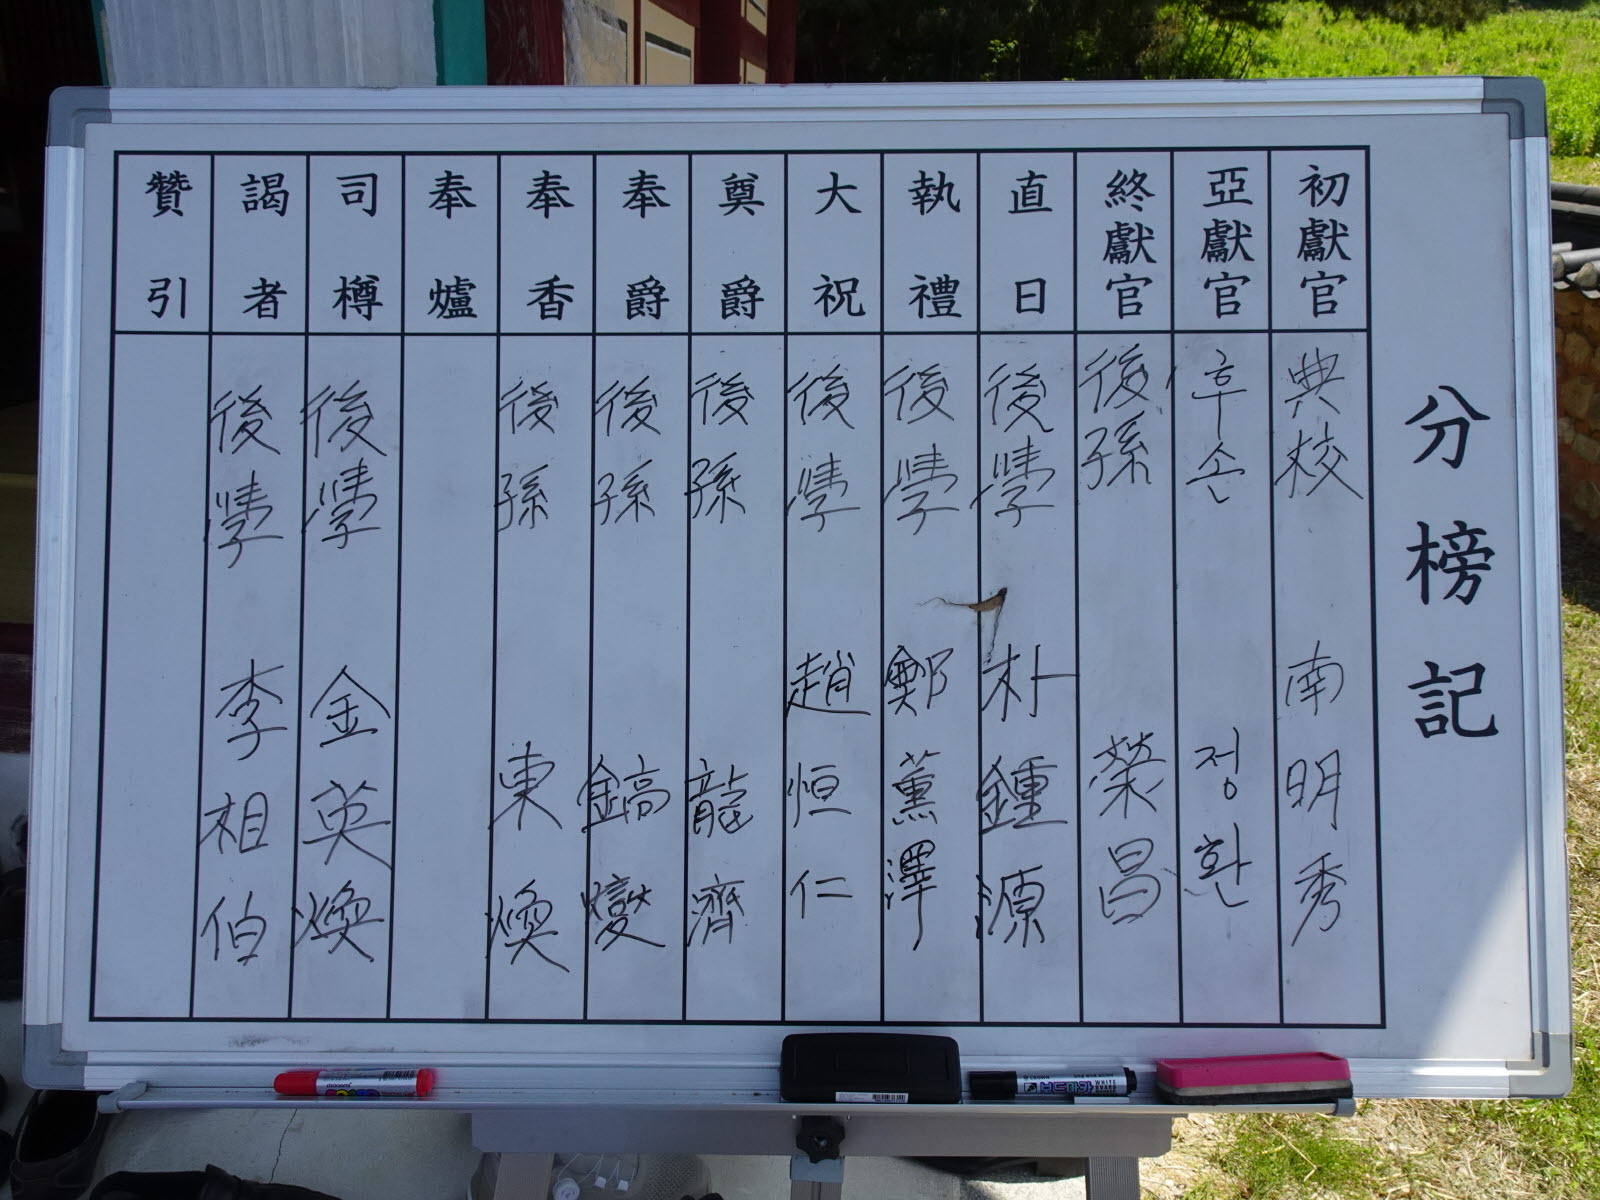 分榜記
初獻官 典校 南明秀
亞獻官 후손 정환
終獻官 後孫 榮昌
直日 後學 朴鍾源
執禮 後學 鄭薰澤
大祝 後學 趙恒仁
奠爵 後孫 龍濟
奉爵 後孫 鎬燮
奉香 後孫 東煥
奉爐
司樽 後學 金英煥
謁者 後學 李相伯
贊引
WHITE
BOARD